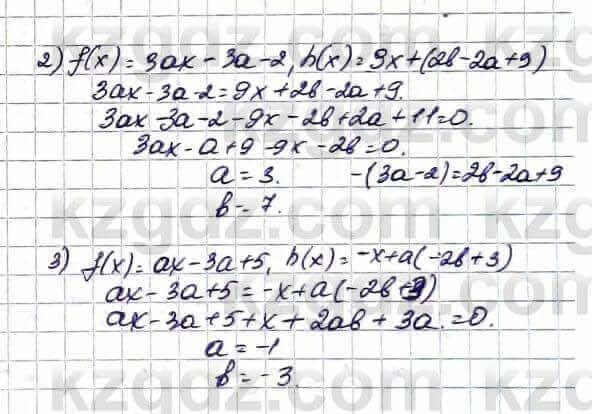 2) f(x) = 3ax - 3a - 2, h(x) = 9x + (2b - 2a + 9)
3ax - 3a - 2 = 9x + 2b - 2a + 9.
3ax - 3a - 2 - 9x - 2b + 2a + 11 = 0.
3ax - a + 9 - 9x - 2b = 0.
a = 3. -(3a - 2) = 2b - 2a + 9
b = -7.
3) f(x) = ax - 3a + 5, h(x) = -x + a(-2b + 3)
ax - 3a + 5 = -x + a(-2b + 3)
ax - 3a + 5 + x + 2ab + 3a. = 0.
a = -1
b = -3.
kzgdz.com